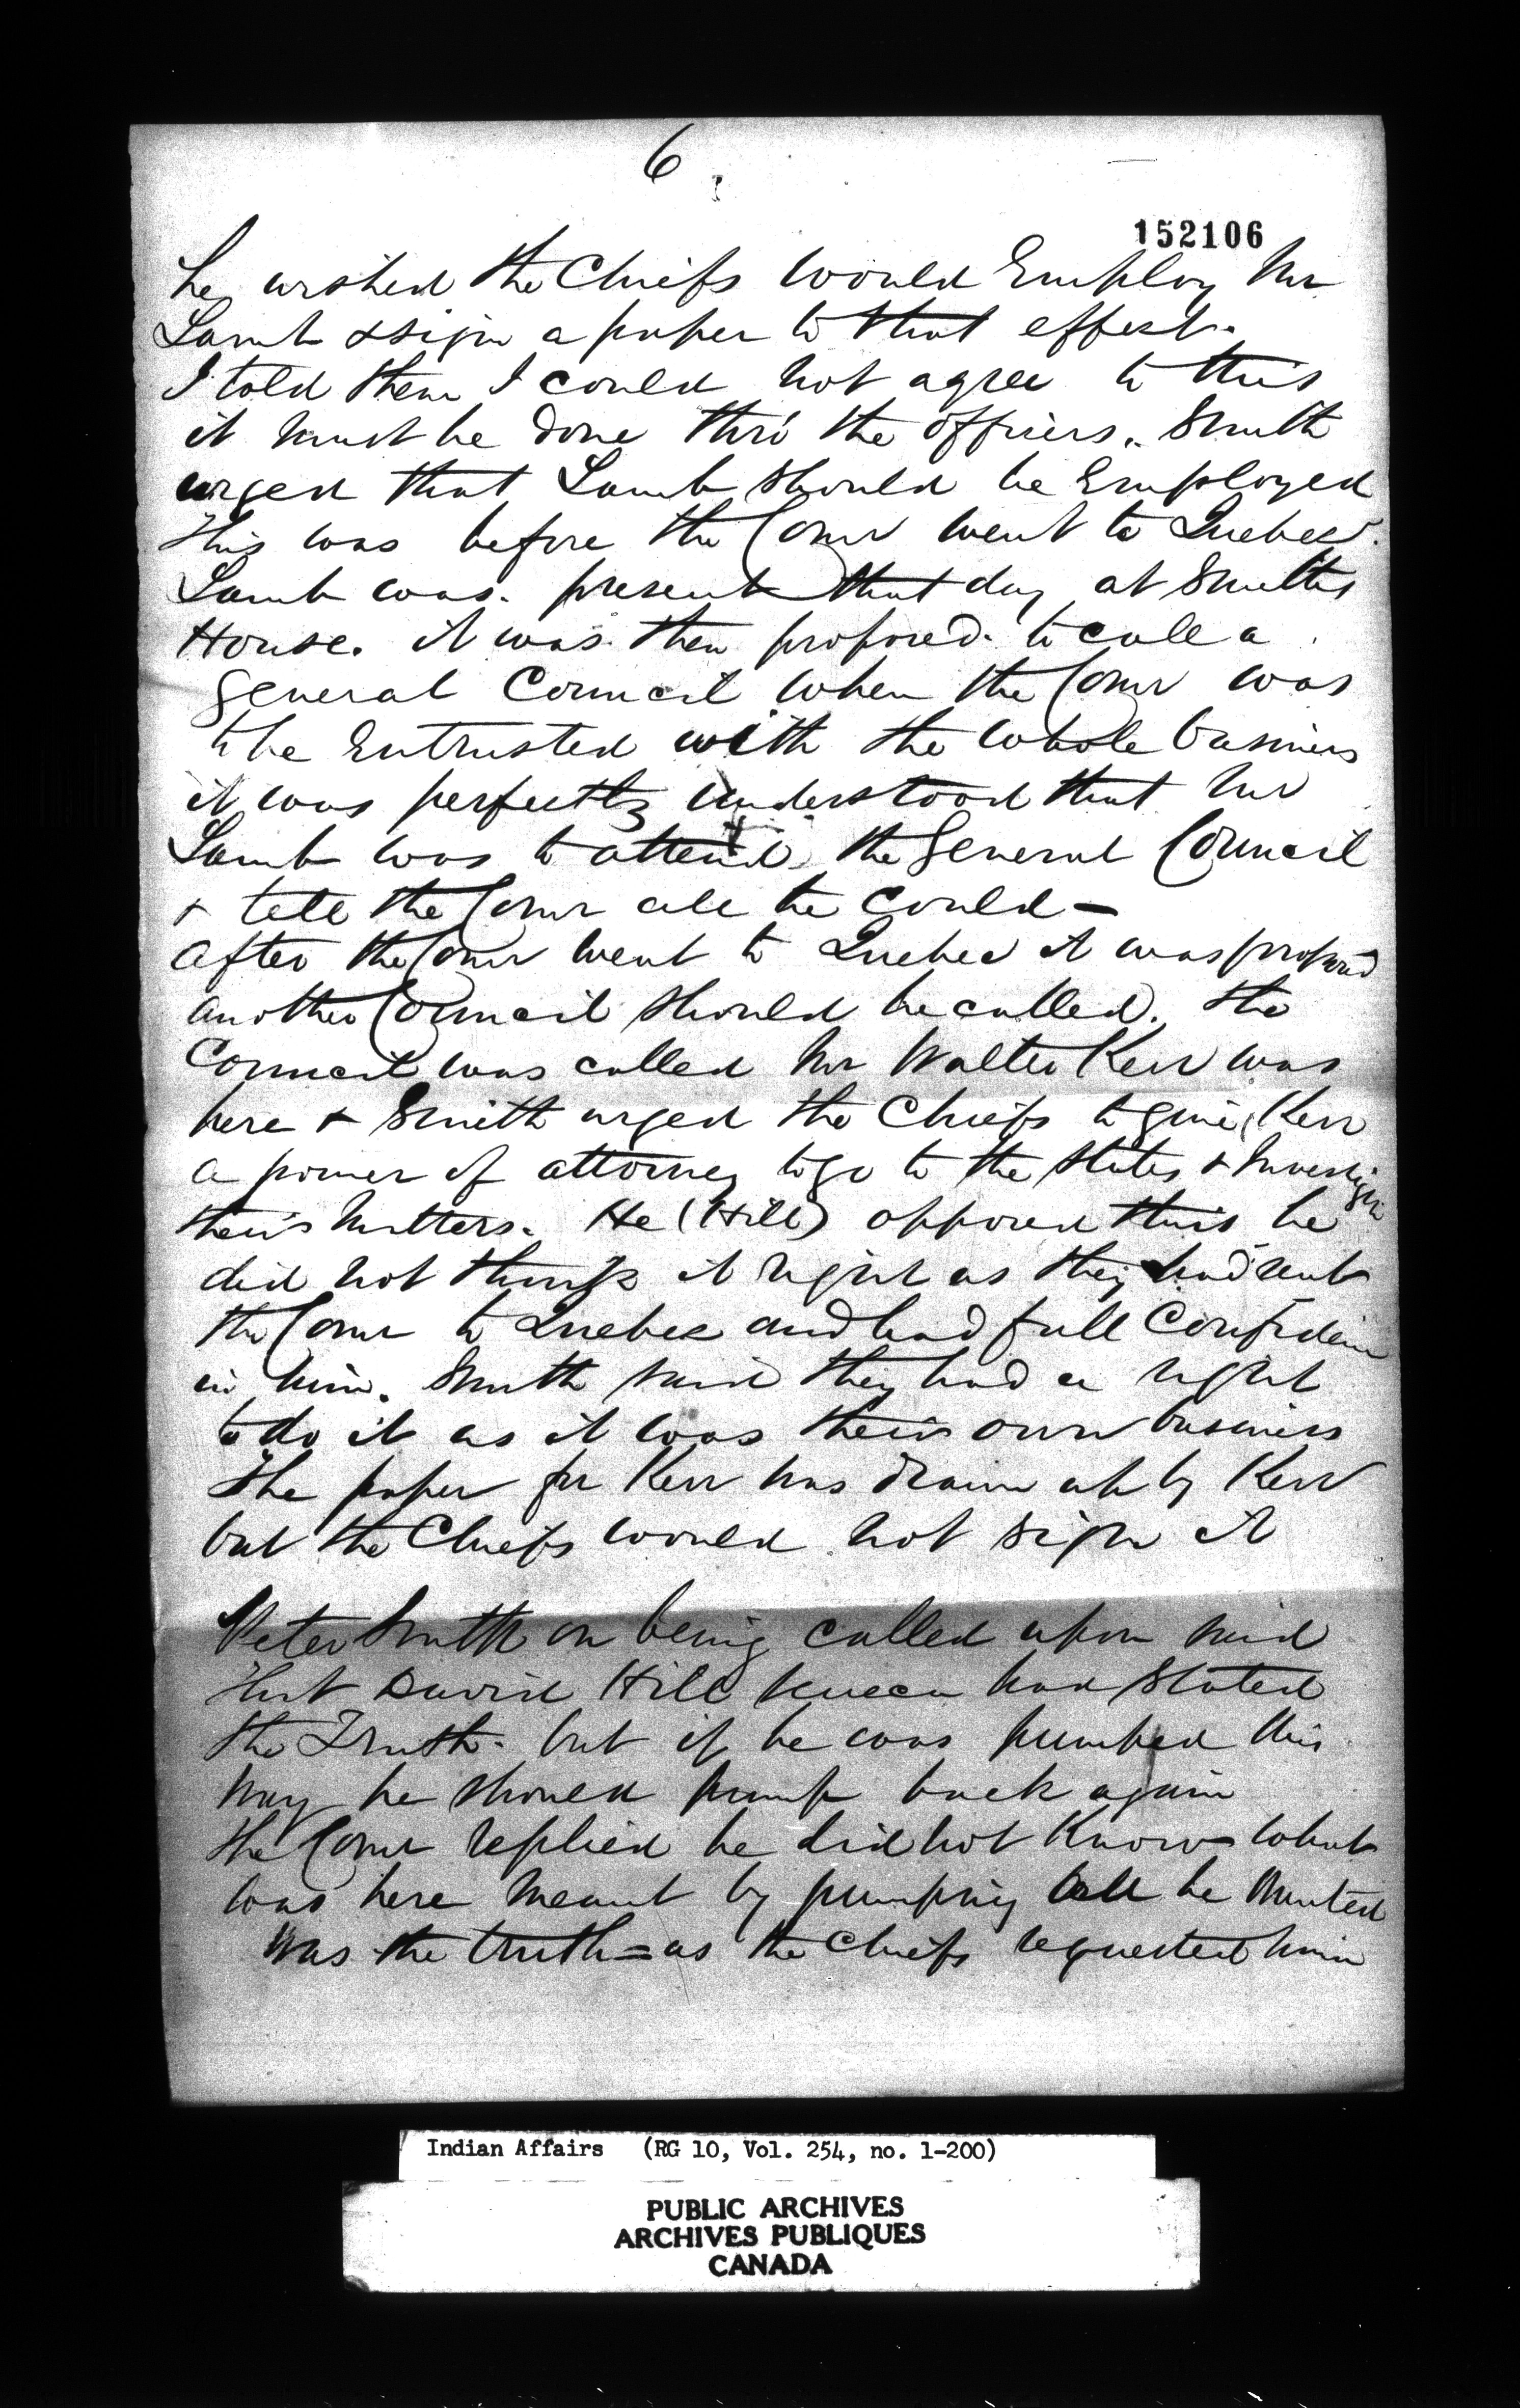 6
152106
he wished the Chiefs would Employ Mr
Lamb & sign a paper to that effect.
I told them I could not agree to this
it must be done thro' the officers. Smith
urged that Lamb should be Employed
this was before the Comr went to Quebec.
Lamb was present that day at Smiths
House. it was then proposed to call a
General Council when the Comr was
to be Entrusted with the whole business
it was perfectly understood that Mr
Lamb was to attend the General Council
& tell the Comr all he could –
after the Comr went to Quebec it was proposed
another Council should be called. the
Council was called Mr Walter Kerr was
here & Smith urged the Chiefs to give Kerr
a power of attorney to go to the States & Investigate
their Matters. He (Hill) opposed this he
did not think it right as they had sent
the Comr to Quebec and had full Confidence
in him. Smith said they had a right
to do it as it was their own business
the paper for Kerr was drawn up by Kerr
but the Chiefs would not sign it
Peter Smith on being called upon said
that David Hill had Stated
the Truth. but if he was pumped this
way he should pump back again
the Comr replied he did not Know what
was here meant by pumping all he wanted
was the truth = as the Chiefs requested him
Indian Affairs (RG 10, Vol. 254, no. 1-200)
PUBLIC ARCHIVES
ARCHIVES PUBLIQUES
CANADA